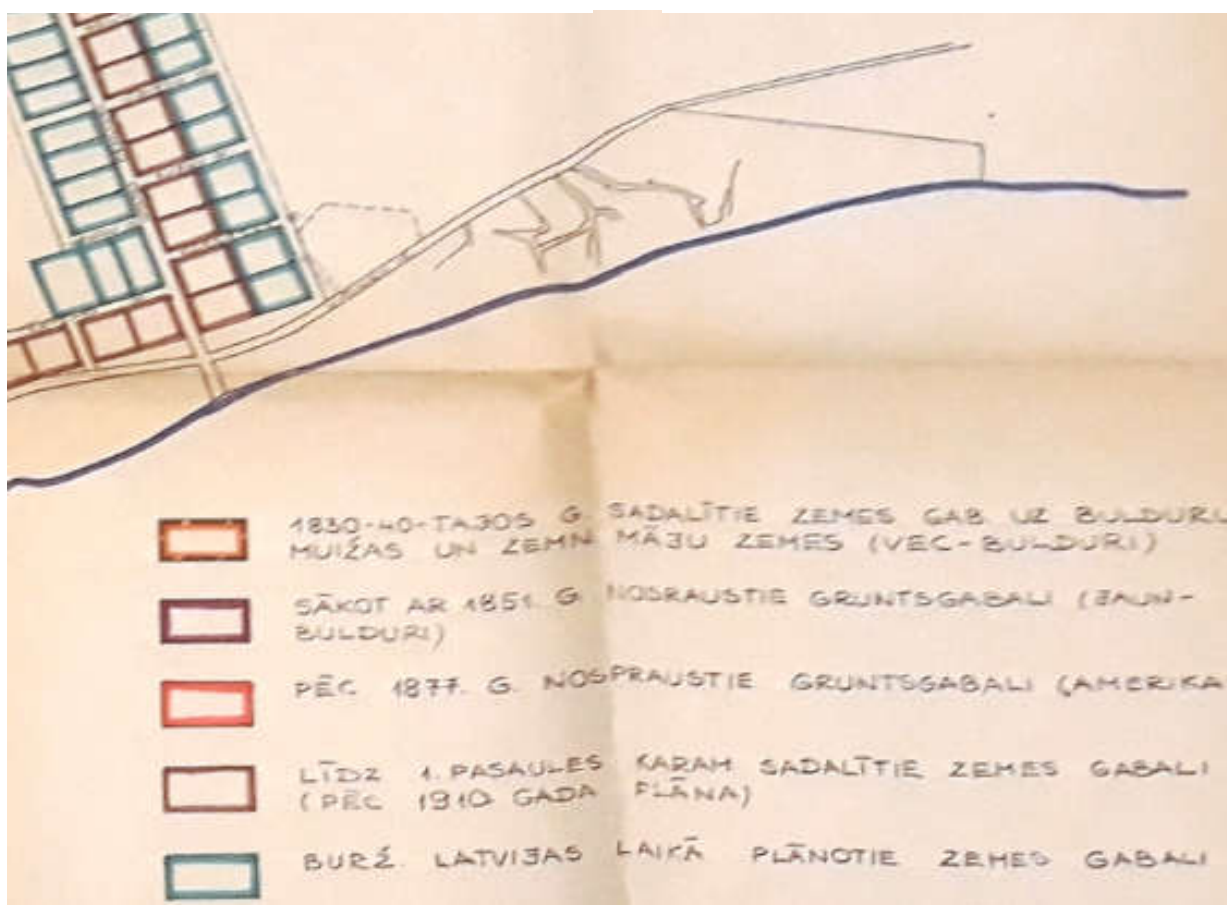 1830-40-TAJOS G. SADALĪTIE ZEMES GAB UZ BULDURU
MUIŽAS UN ZEMN MĀJU ZEMES (VEC-BULDURI)
SĀKOT AR 1851. G. NOSRAUSTIE GRUNTSGABALI (JAUN-
BULDURI)
PĒC 1877. G. NOSPRAUSTIE GRUNTSGABALI (AMERIKA
LĪDZ 1. PASAULES KARAM SADALĪTIE ZEMES GABALI
(PĒC 1910 GADA PLĀNA)
BURŽ. LATVIJAS LAIKĀ PLĀNOTIE ZEMES GABALI